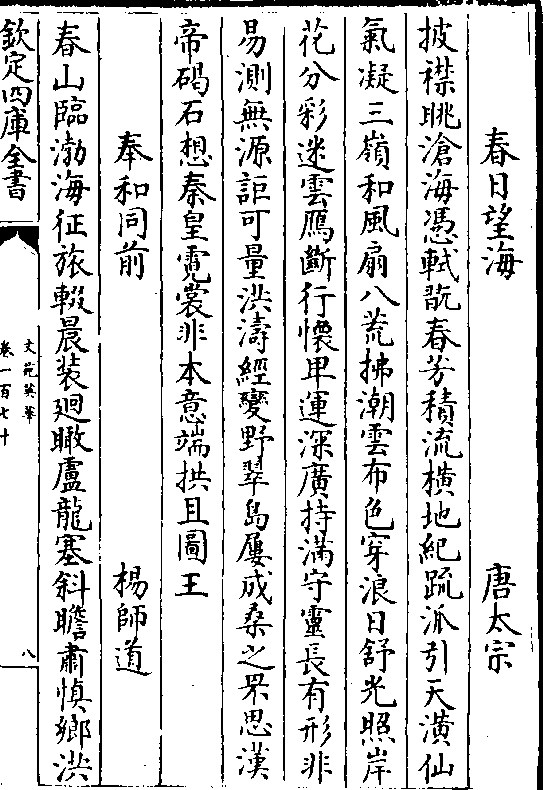 春日望海 唐太宗
披襟眺滄海憑軾翫春芳積流橫地紀䟽派引天潢仙
氣凝三嶺和風扇八荒拂潮雲布色穿浪日舒光照岸
花分彩迷雲鴈斷行懷卑運深廣持滿守靈長有形非
易測無源詎可量洪濤經變野翠島屢成桑之罘思漢
帝碣石想秦皇霓裳非本意端拱且圖王
奉和同前 楊師道
春山臨渤海征旅輟晨装廻瞰盧龍塞斜瞻肅慎鄉洪
欽定四庫全書
文苑英華
卷一百七十
八